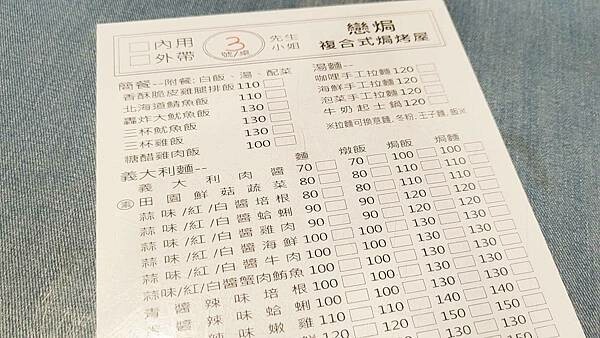 內用
外帶
3
號/桌
先生
小姐
戀焗
複合式焗烤屋
簡餐--附餐:白飯、湯、配菜
香酥脆皮雞腿排飯 110
北海道鯖魚飯 110
轟炸大魷魚飯 130
三杯魷魚飯 130
三杯雞飯 130
糖醋雞肉飯 100
湯麵--
咖哩手工拉麵 120
海鮮手工拉麵 120
泡菜手工拉麵 120
牛奶起士鍋 120
※拉麵可換意麵, 冬粉, 王子麵, 飯※
義大利麵-- 麵 燉飯 焗飯 焗麵
義大利肉醬 70 70 100 100
素 田園鮮菇蔬菜 80 80 110 110
蒜味/紅/白醬培根 80 80 110 110
蒜味/紅/白醬蛤蜊 90 90 120 120
蒜味/紅/白醬雞肉 90 90 120 120
蒜味/紅/白醬海鮮 100 100 130 130
蒜味/紅/白醬牛肉 100 100 130 130
蒜味/紅/白醬蟹肉鮪魚 100 100 130 130
青醬辣味培根 100 100 130 130
辣味嫩雞 110 110 140 140
120 120 150 150